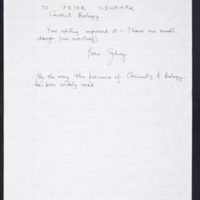 TO PETER NEWMARK
Current Biology.
Your editing improved it - I have one small
change (see overleaf)
Yours Sydney
By the way the preview of Chemistry & Biology
has been widely read.